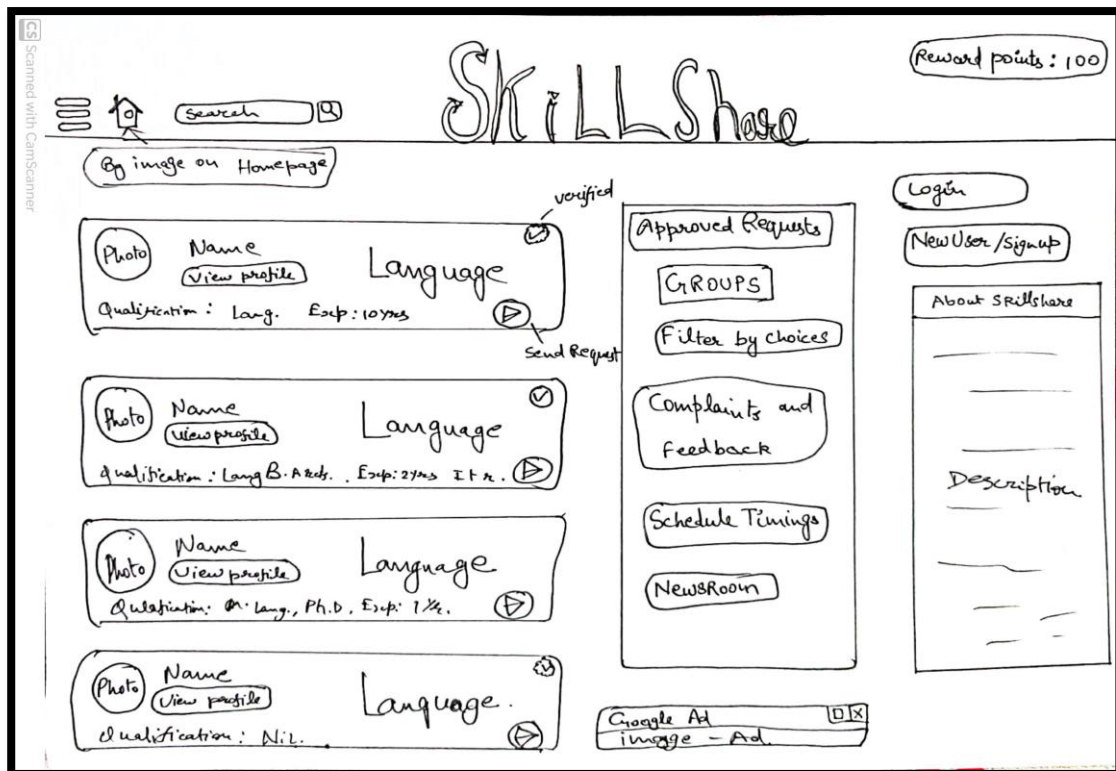 CS Scanned with CamScanner
SkiLLShare
Reward points: 100
search
By image on Homepage
verified
Photo
Name
View profile
Language
Qualification: Lang. Exp: 10yrs
Send Request
Photo
Name
view profile
Language
Qualification: Lang B. Exp: 2yrs
Photo
Name
View profile
Language
Lang., Ph.D, Exp: 1 Yr.
Photo
Name
View profile
Language.
Qualification: NiL.
Approved Requests
GROUPS
Filter by choices
Complaints and
Feedback
Schedule Timings
NewsRoom
Google Ad
image - Ad
Login
New User/signup
About Skillshare
Description